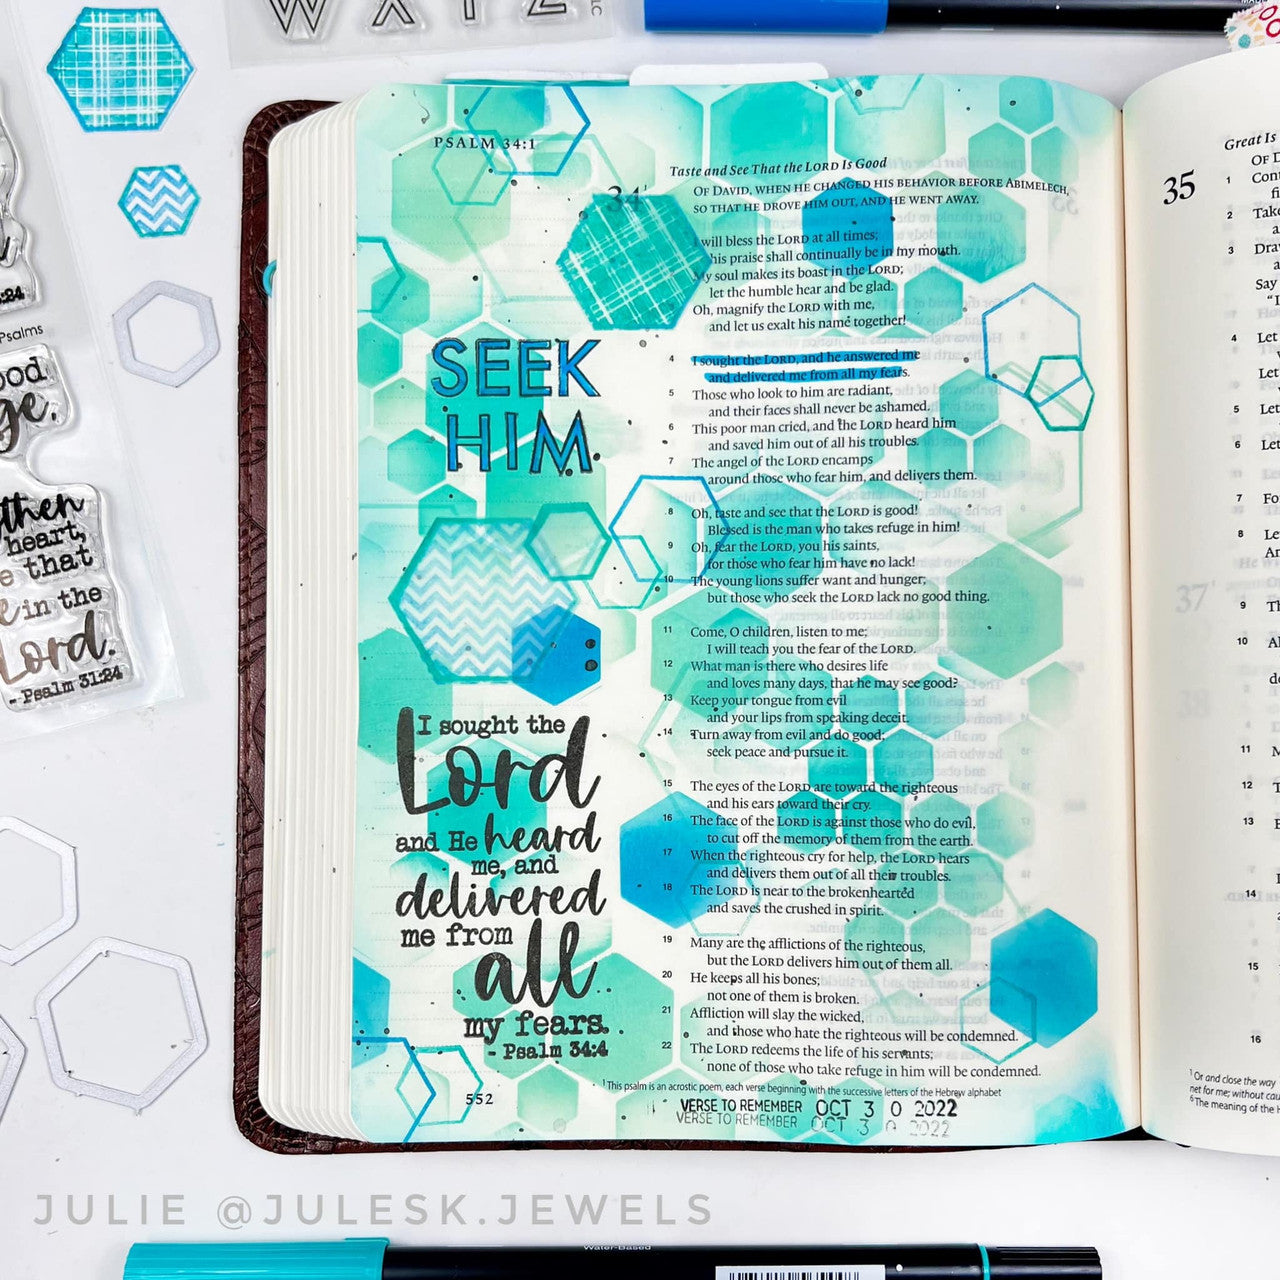 W X Y Z
LLC
Psalms
:24
ood
ge.
then
heart,
e that
e in the
Lord.
- Psalm 31:24
PSALM 34:1
34
Taste and See That the LORD Is Good
OF DAVID, WHEN HE CHANGED HIS BEHAVIOR BEFORE ABIMELECH,
SO THAT HE DROVE HIM OUT, AND HE WENT AWAY.
I will bless the LORD at all times;
his praise shall continually be in my mouth.
My soul makes its boast in the LORD;
let the humble hear and be glad.
Oh, magnify the LORD with me,
and let us exalt his name together!
4 I sought the LORD, and he answered me
and delivered me from all my fears.
5 Those who look to him are radiant,
and their faces shall never be ashamed.
6 This poor man cried, and the LORD heard him
and saved him out of all his troubles.
7 The angel of the LORD encamps
around those who fear him, and delivers them.
8 Oh, taste and see that the LORD is good!
Blessed is the man who takes refuge in him!
9 Oh, fear the LORD, you his saints,
for those who fear him have no lack!
10 The young lions suffer want and hunger;
but those who seek the LORD lack no good thing.
11 Come, O children, listen to me;
I will teach you the fear of the LORD.
12 What man is there who desires life
and loves many days, that he may see good?
13 Keep your tongue from evil
and your lips from speaking deceit.
14 Turn away from evil and do good;
seek peace and pursue it.
15 The eyes of the LORD are toward the righteous
and his ears toward their cry.
16 The face of the LORD is against those who do evil,
to cut off the memory of them from the earth.
17 When the righteous cry for help, the LORD hears
and delivers them out of all their troubles.
18 The LORD is near to the brokenhearted
and saves the crushed in spirit.
19 Many are the afflictions of the righteous,
but the LORD delivers him out of them all.
20 He keeps all his bones;
not one of them is broken.
21 Affliction will slay the wicked,
and those who hate the righteous will be condemned.
22 The LORD redeems the life of his servants;
none of those who take refuge in him will be condemned.
1 This psalm is an acrostic poem, each verse beginning with the successive letters of the Hebrew alphabet
VERSE TO REMEMBER OCT 3 0 2022
VERSE TO REMEMBER OCT 3 0 2022
SEEK
HIM
I sought the
Lord
and He heard
me, and
delivered
me from
all
my fears.
- Psalm 34:4
552
Great Is
OF D
35
1 Cont
fi
2 Take
a
3 Draw
a
Say
"I
4 Let
Let
5 Let
6 Let
7 Fo
8 Le
An
9 Th
10 Al
de
11 M
12 T
13 B
14
15
16
1 Or and close the way
net for me; without cau
6 The meaning of the H
JULIE @JULESK.JEWELS
Water-Based